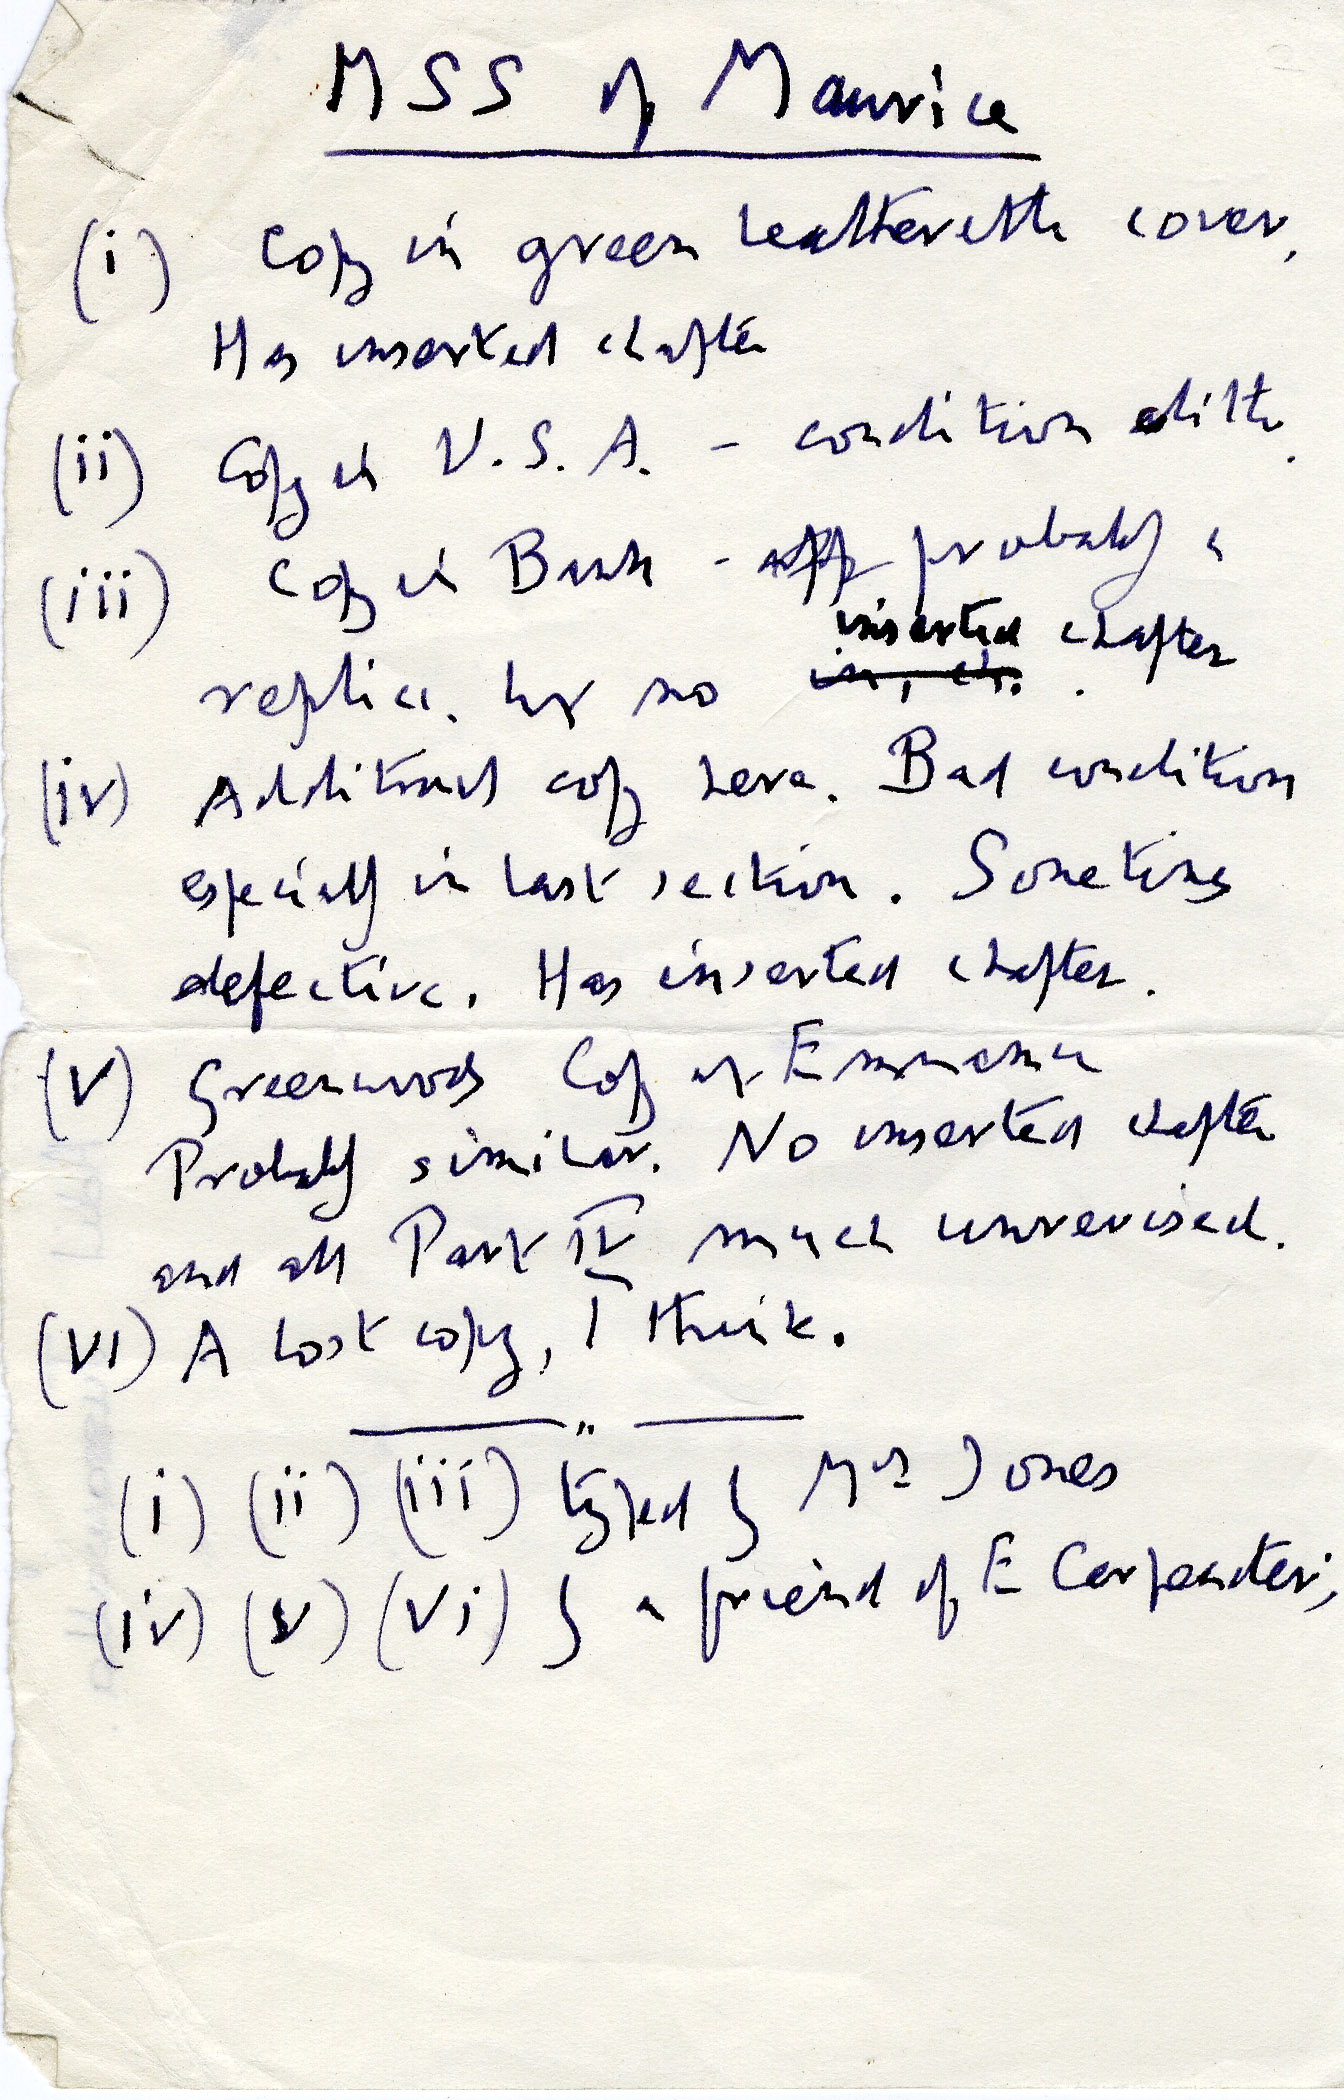 MSS of Maurice
(i) Copy in green leatherette cover,
Has inserted chapter
(ii) Copy in U.S.A. – condition ditto.
(iii) Copy in Bank – probably a
inserted chapter
replica. but no in, ch. .
(iv) Additional copy here. Bad condition
especially in last section. Sometimes
defective. Has inserted chapter.
(v) Greenwood's Copy at Emmanuel
Probably similar. No inserted chapter
and all Part IV much unrevised.
(vi) A lost copy, I think.
"
(i) (ii) (iii) typed by Mrs Jones
(iv) (v) (vi) by a friend of E Carpenter's